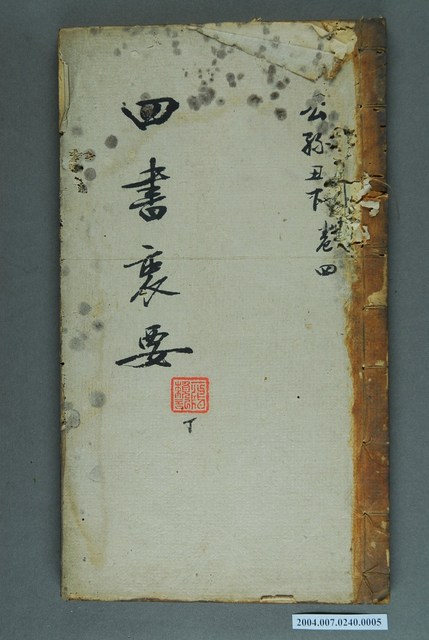 公孫丑下卷四
四書要
丁
2004.007.0240.0005